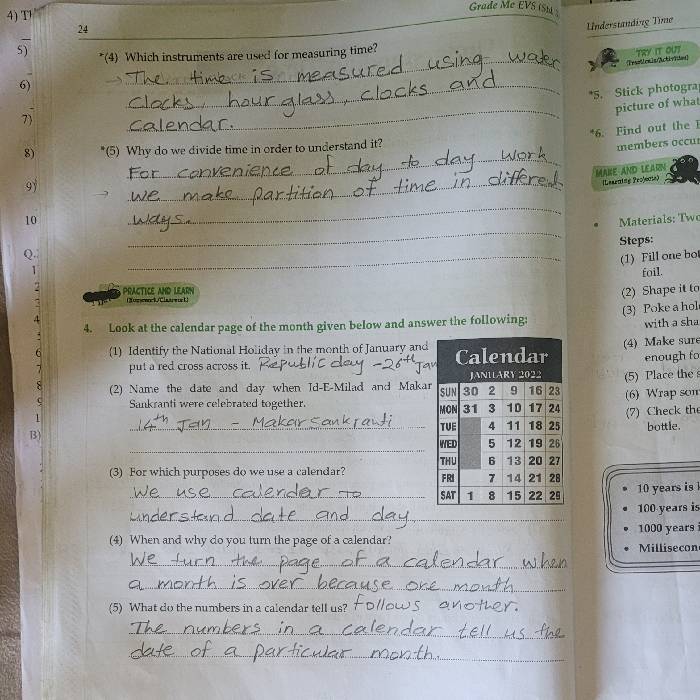 4)
5)
6)
7)
8)
9)
10
Q.
B)
24
Grade Me EVS
*(4) Which instruments are used for measuring time?
The time is measured using water
clocks, hour glass, clocks and
calendar.
*(5) Why do we divide time in order to understand it?
For convenience of day to day work
we make partition of time in different
ways.
PRACTICE AND LEARN
(Homework/Classwork)
4. Look at the calendar page of the month given below and answer the following:
(1) Identify the National Holiday in the month of January and
put a red cross across it. Republic day - 26th Jan
(2) Name the date and day when Id-E-Milad and Makar
Sankranti were celebrated together.
14th Jan - Makar sankranti
(3) For which purposes do we use a calendar?
We use calendar to
understand date and day
(4) When and why do you turn the page of a calendar?
We turn the page of a calendar when
a month is over because one month
follows another.
(5) What do the numbers in a calendar tell us?
The numbers in a calendar tell us the
date of a particular month.
Calendar
JANUARY 2022
SUN 30 2 9 16 23
MON 31 3 10 17 24
TUE 4 11 18 25
WED 5 12 19 26
THU 6 13 20 27
FRI 7 14 21 28
SAT 1 8 15 22 29
Understanding Time
TRY IT OUT
(Practicals/Activities)
*5. Stick photogra
picture of wha
*6. Find out the
members occur
MAKE AND LEARN
(Learning Projects)
• Materials: Two
Steps:
(1) Fill one bot
foil.
(2) Shape it to
(3) Poke a hol
with a sha
(4) Make sure
enough fo
(5) Place the
(6) Wrap som
(7) Check the
bottle.
• 10 years is
• 100 years is
• 1000 years
• Millisecon